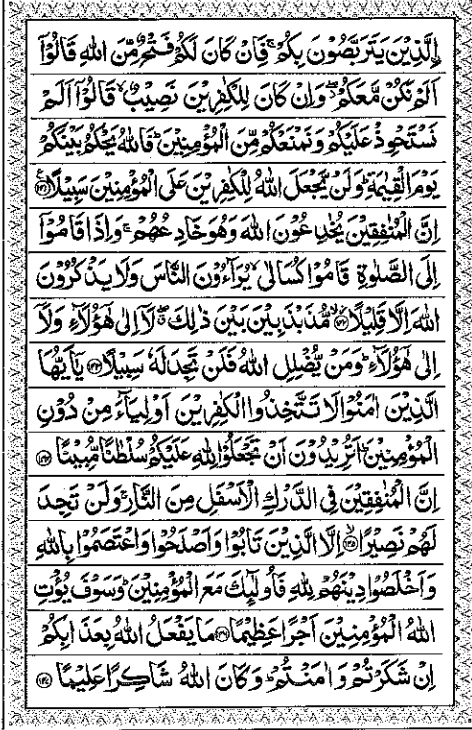 اِلَّذِيْنَ يَتَرَبَّصُوْنَ بِكُمْ ۚ فَاِنْ كَانَ لَكُمْ فَتْحٌ مِّنَ اللهِ قَالُوْٓا
اَلَمْ نَكُنْ مَّعَكُمْ ۖ وَاِنْ كَانَ لِلْكٰفِرِيْنَ نَصِيْبٌ ۙ قَالُوْٓا اَلَمْ
نَسْتَحْوِذْ عَلَيْكُمْ وَنَمْنَعْكُمْ مِّنَ الْمُؤْمِنِيْنَ ؕ فَاللهُ يَحْكُمُ بَيْنَكُمْ
يَوْمَ الْقِيٰمَةِ ؕ وَلَنْ يَّجْعَلَ اللهُ لِلْكٰفِرِيْنَ عَلَى الْمُؤْمِنِيْنَ سَبِيْلًا ﴿۱۴۱﴾
اِنَّ الْمُنٰفِقِيْنَ يُخٰدِعُوْنَ اللهَ وَهُوَ خَادِعُهُمْ ۚ وَاِذَا قَامُوْٓا
اِلَى الصَّلٰوةِ قَامُوْا كُسَالٰى ۙ يُرَآءُوْنَ النَّاسَ وَلَا يَذْكُرُوْنَ
اللهَ اِلَّا قَلِيْلًا ﴿۱۴۲﴾ مُّذَبْذَبِيْنَ بَيْنَ ذٰلِكَ ۖ لَآ اِلٰى هٰٓؤُلَآءِ وَلَآ
اِلٰى هٰٓؤُلَآءِ ؕ وَمَنْ يُّضْلِلِ اللهُ فَلَنْ تَجِدَ لَهٗ سَبِيْلًا ﴿۱۴۳﴾ يٰٓاَيُّهَا
الَّذِيْنَ اٰمَنُوْا لَا تَتَّخِذُوا الْكٰفِرِيْنَ اَوْلِيَآءَ مِنْ دُوْنِ
الْمُؤْمِنِيْنَ ؕ اَتُرِيْدُوْنَ اَنْ تَجْعَلُوْا لِلّٰهِ عَلَيْكُمْ سُلْطٰنًا مُّبِيْنًا ﴿۱۴۴﴾
اِنَّ الْمُنٰفِقِيْنَ فِى الدَّرْكِ الْاَسْفَلِ مِنَ النَّارِ ۚ وَلَنْ تَجِدَ
لَهُمْ نَصِيْرًا ﴿۱۴۵﴾ اِلَّا الَّذِيْنَ تَابُوْا وَاَصْلَحُوْا وَاعْتَصَمُوْا بِاللهِ
وَاَخْلَصُوْا دِيْنَهُمْ لِلّٰهِ فَاُولٰٓئِكَ مَعَ الْمُؤْمِنِيْنَ ؕ وَسَوْفَ يُؤْتِ
اللهُ الْمُؤْمِنِيْنَ اَجْرًا عَظِيْمًا ﴿۱۴۶﴾ مَا يَفْعَلُ اللهُ بِعَذَابِكُمْ
اِنْ شَكَرْتُمْ وَاٰمَنْتُمْ ؕ وَكَانَ اللهُ شَاكِرًا عَلِيْمًا ﴿۱۴۷﴾